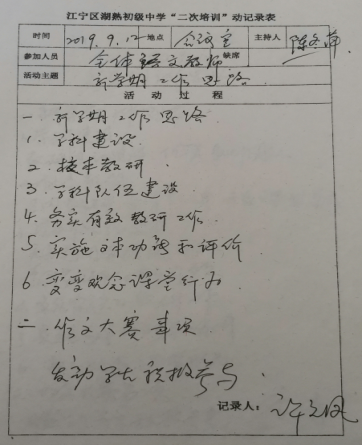 江宁区湖熟初级中学“二次培训”动记录表
时间 2019.9.12 地点 会议室 主持人
参加人员 全体语文教师 缺席
活动主题 新学期工作思路
活动过程
一 新学期工作思路
1. 学科建设
2. 校本教研
3. 学科队伍建设
4. 务实有效教研工作
5. 实施文本功能和评价
6 变观念课堂行为
二 作文大赛事项
发动学生积极参与
记录人：